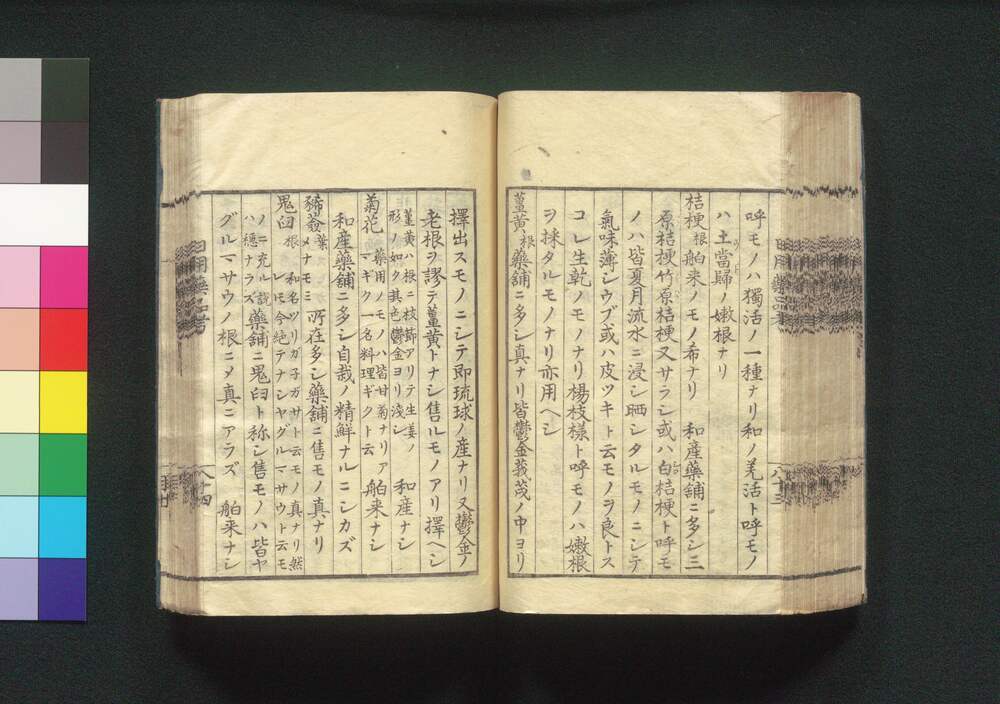 呼モノハ獨活ノ一種ナリ和ノ羌活ト呼モノ
ハ土當歸ノ嫩根ナリ
桔梗根 舶来ノモノ希ナリ 和産藥舗ニ多シ三
原桔梗竹原桔梗又サラシ或ハ白桔梗ト呼モ
ノハ皆夏月流水ニ浸シ晒シタルモノニシテ
氣味薄シウブ或ハ皮ツキト云モノヲ良トス
コレ生乾ノモノナリ楊枝様ト呼モノハ嫩根
ヲ採タルモノナリ亦用ヘシ
薑黄根 藥舗ニ多シ真ナリ皆鬱金莪蒁ノ中ヨリ
八十三
擇出スモノニシテ即琉球ノ産ナリ又鬱金ノ
老根ヲ謬テ薑黄トナシ售ルモノアリ擇ヘシ
薑黄ハ根ニ枝節アリテ生姜ノ
形ノ如ク其色鬱金ヨリ淺シ 和産ナシ
菊花 藥用ノモノハ皆甘菊ナリア
マギク一名料理ギクト云 舶来ナシ
和産藥舗ニ多シ自栽ノ精鮮ナルニシカズ
豨薟葉 メナモミ 所在多シ藥舗ニ售モノ真ナリ
鬼臼根 和名ツリガ子ガサト云モノ真ナリ然
レ𪜈今絶テナシヤグルマサウト云モ
ノニ充ル説
ハ穏ナラズ 藥舗ニ鬼臼ト称シ售モノハ皆ヤ
グルマサウノ根ニメ真ニアラズ 舶来ナシ
八十四